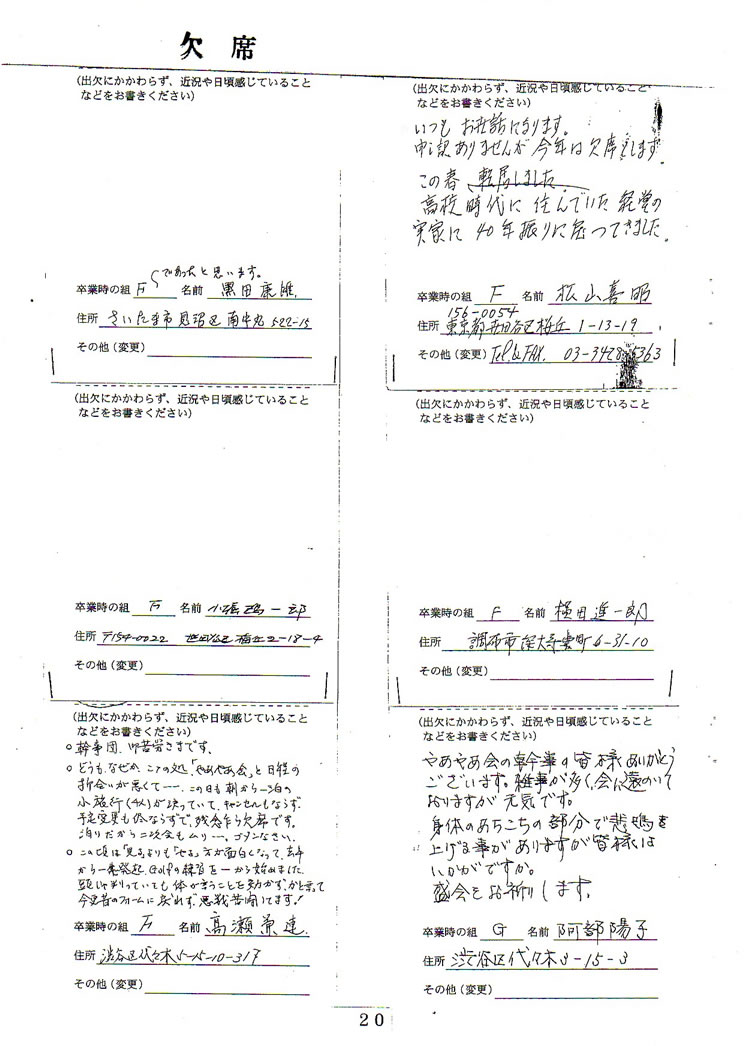 欠席
(出欠にかかわらず、近況や日頃感じていること
などをお書きください)
であったと思います。
卒業時の組 F 名前 黒田康雄
住所 さいたま市見沼区南中丸 522-15
その他(変更)
(出欠にかかわらず、近況や日頃感じていること
などをお書きください)
いつも お世話になります。
申し訳ありませんが今年は欠席します。
この春、転居しました。
高校時代に住んでいた経堂の
実家に40年振りに戻ってきました。
卒業時の組 F 名前 松山喜明
156-0054
住所 東京都世田谷区桜丘 1-13-19
その他(変更) Tel.&FAX. 03-3428-5363
(出欠にかかわらず、近況や日頃感じていること
などをお書きください)
卒業時の組 F 名前 小張 一郎
住所 〒154-0022 世田谷区梅丘2-18-4
その他(変更)
(出欠にかかわらず、近況や日頃感じていること
などをお書きください)
卒業時の組 F 名前 横田進一郎
住所 調布市深大寺東町6-31-10
その他(変更)
(出欠にかかわらず、近況や日頃感じていること
などをお書きください)
○幹事団、御苦労さまです。
○どうも、なぜか、ここの処、「やあやあ会」と日程の
折合いが悪くて……この日も朝から一泊の
小旅行(4人)が決っていて、キャンセルもならず、
予定変更も出来ならずで、残念乍ら欠席です。
泊りだから二次会もムリ…。ゴメンなさい。
○この頃は「見る」よりも「やる」方が面白くなって、去年
から一念発起、Golfの練習を一から始めました。
頭で判っていても体が言うことを効かず、かと言って
今更昔のフォームに戻れず、悪戦苦闘してます!
卒業時の組 F 名前 高瀬兼達
住所 渋谷区代々木5-15-10-317
その他(変更)
(出欠にかかわらず、近況や日頃感じていること
などをお書きください)
やあやあ会の幹事の皆様ありがとう
ございます。雑事が多く、会に遠のいて
おりますが元気です。
身体のあちこちの部分で悲鳴を
上げる事がありますが皆様は
いかがですか。
盛会をお祈りします。
卒業時の組 G 名前 阿部陽子
住所 渋谷区代々木3-15-3
その他(変更)
20